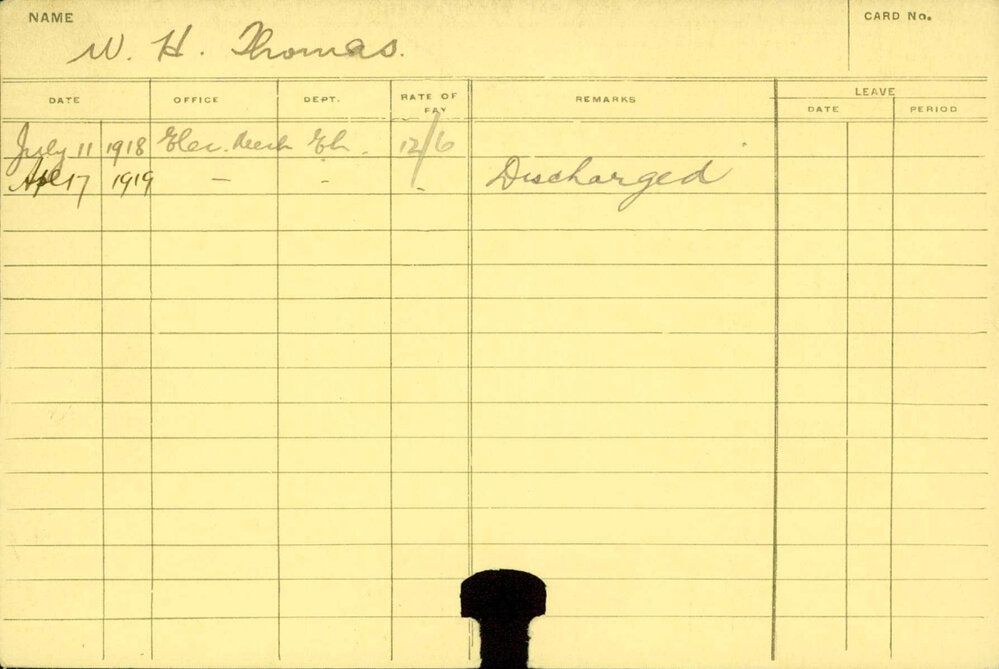 NAME
CARD No.
W. H. Thomas.
DATE OFFICE DEPT. RATE OF PAY REMARKS LEAVE
DATE PERIOD
July 11 1918 Elec. Mech El. 12/6
Apl 17 1919 – - - Discharged